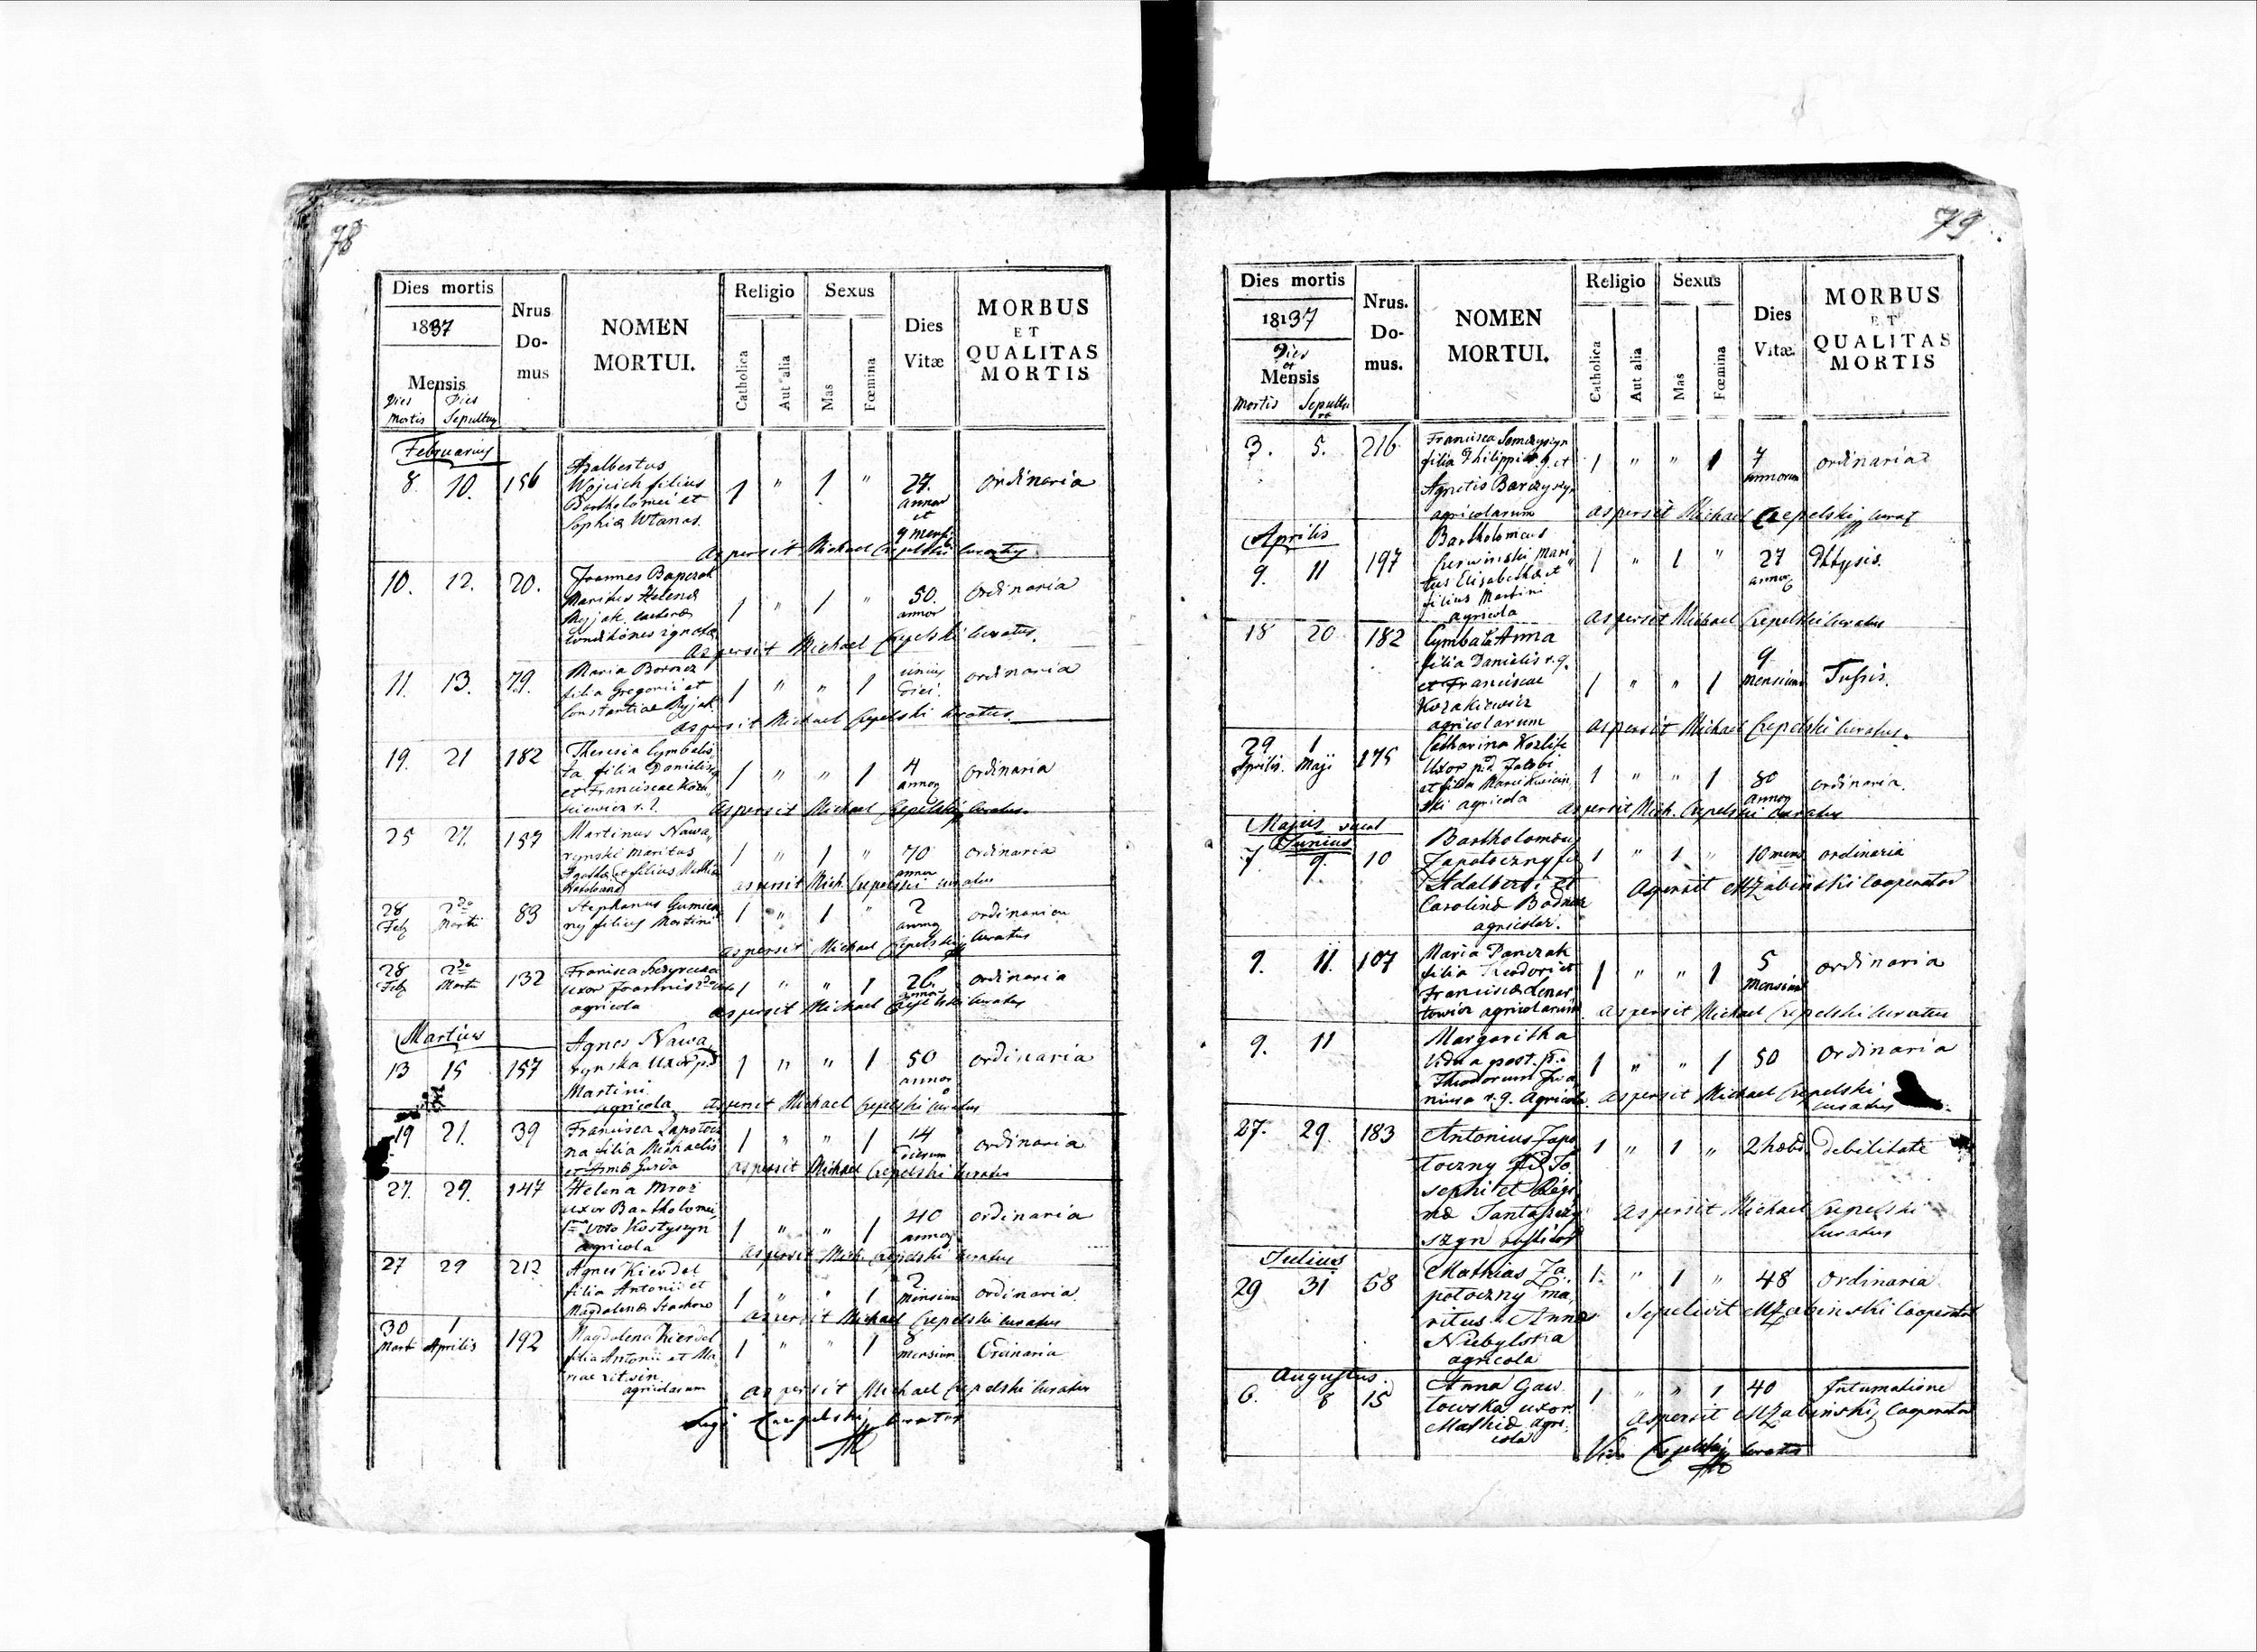 78
Dies mortis
1837
Mensis
Dies Mortis
Dies Sepultury
Nrus Domus
NOMEN
MORTUI.
Religio
Catholica
Aut alia
Sexus
Mas
Fœmina
Dies
Vitæ
MORBUS
ET
QUALITAS
MORTIS
Februarius
8. 10. 156 Adalbertus 1 " 1 " 27. ordinaria
Wojcich filius annor
Bartholomei et et
Sophiæ Wtanas. 9 mens
Aspersit Michael Crepelski Curatus
10. 12. 20. Joannes 1 " 1 " 50. ordinaria
Maritus Helenæ annor
Ryjak. cæteræ
conditiones ignotæ
Aspersit Michael Crepelski Curatus.
11. 13. 79. Maria 1 " " 1 unius ordinaria
filia Gregorii et diei.
Constantiæ Ryjak
Aspersit Michael Crepelski Curatus.
19. 21 182 Theresia Cymbalis 1 " " 1 4 ordinaria
ta filia Danielis annor
et Franciscae Koza
kiewicz r. g.
Aspersit Michael Crepelskij Curatus.
25 27. 157 Martinus Nawa 1 " 1 " 70 ordinaria
rynski maritus annor
et filius
aspersit Mich. Crepelski curatus
28 Feb 2da Martii 83 Stephanus Gumien 1 " 1 " 2 ordinaria
ny filius Martini annor
aspersit Michael Crepelskij Curatus
28 Feb 2da Martii 132 Francisca 1 " " 1 26. ordinaria
uxor Joannis annor
agricola
aspersit Michael Crepelski Curatus
Martius
13 15 157 Agnes Nawa 1 " " 1 50 ordinaria
rynska uxor p.d annor
Martini
agricola
aspersit Michael Crepelski Curatus
19 21. 39 Francisca Zapotocz 1 " " 1 14 ordinaria
na filia Michaelis dierum
et Annæ
aspersit Michael Crepelski Curatus
27. 29. 147 Helena Mroz 1 " " 1 40 ordinaria
uxor Bartholomei annor
voto Kostyszyn
agricola
aspersit Mich. Crepelski Curatus
27 29 212 Agnes Kierdel 1 " " 1 2 ordinaria
filia Antonii et mensium
Magdalenæ
aspersit Michael Crepelski Curatus
30 Marti 1 Aprilis 192 Magdalena Kierdel 1 " " 1 8 Ordinaria
filia Antonii et Ma mensium
riae
agricolarum
aspersit Michael Crepelski Curatus
Crepelskij Curatus
79
Dies mortis
1837
Dies et
Mensis
Mortis Sepultu
ræ
Nrus. Domus.
NOMEN
MORTUI.
Religio
Catholica
Aut alia
Sexus
Mas
Fœmina
Dies
Vitæ.
MORBUS
ET
QUALITAS
MORTIS
3. 5. 216 Francisca 1 " " 1 7 ordinaria
filia Philippi r. g. et annorum
Agnetis
agricolarum
aspersit Michael Crepelskij Curat
Aprilis
9. 11 197 Bartholomeus 1 " 1 " 27 Phtysis.
Czerwinski Mari annor
tus Elisabethæ et
filius Martini
agricola
aspersit Michael Crepelski Curatus
18 20 182 Cymbalista Anna 1 " " 1 9 Tussis.
filia Danielis r. g. mensium
et Franciscae
Kozakiewicz
agricolarum
aspersit Michael Crepelski Curatus.
29 Aprilis. 1 Maji 175 Catharina 1 " " 1 80 ordinaria.
Uxor p.d Jacobi annor
et filia
agricola
aspersit Mich. Crepelski Curatus
Majus vacat
Junius
7 9. 10 Bartholomeus 1 " 1 " 10 mens ordinaria
Zapotoczny fil
Adalberti et
Carolinæ Bodnar
agricolar.
Aspersit MZabinski Cooperator
9. 11. 107 Maria Panczak 1 " " 1 5 ordinaria
filia Teodori et Mensium
Franciscæ Lenar
towicz agricolarum
aspersit Michael Crepelski Curatus
9. 11 Margaritha 1 " " 1 50 ordinaria
Vidua post. p.
Theodorum
r. g. Agricola.
aspersit Michael Crepelski
curatus
27. 29. 183 Antonius Zapo 1 " 1 " 2 hebd debilitate
toczny fil Jo
sephi et Regi
næ
szyn
aspersit Michael Crepelski
Curatus
Julius
29 31 58 Mathias Za 1. " 1 " 48 ordinaria
potoczny ma
ritus Annæ
Niebylska
agricola
Sepelivit MZabinski Cooperator
Augustus
6. 8 15 Anna Gaw 1 " " 1 40 Intumatione
towska uxor.
Mathiæ agri
cola
aspersit MZabinskij Cooperator
Vidi Crepelskij Curatus